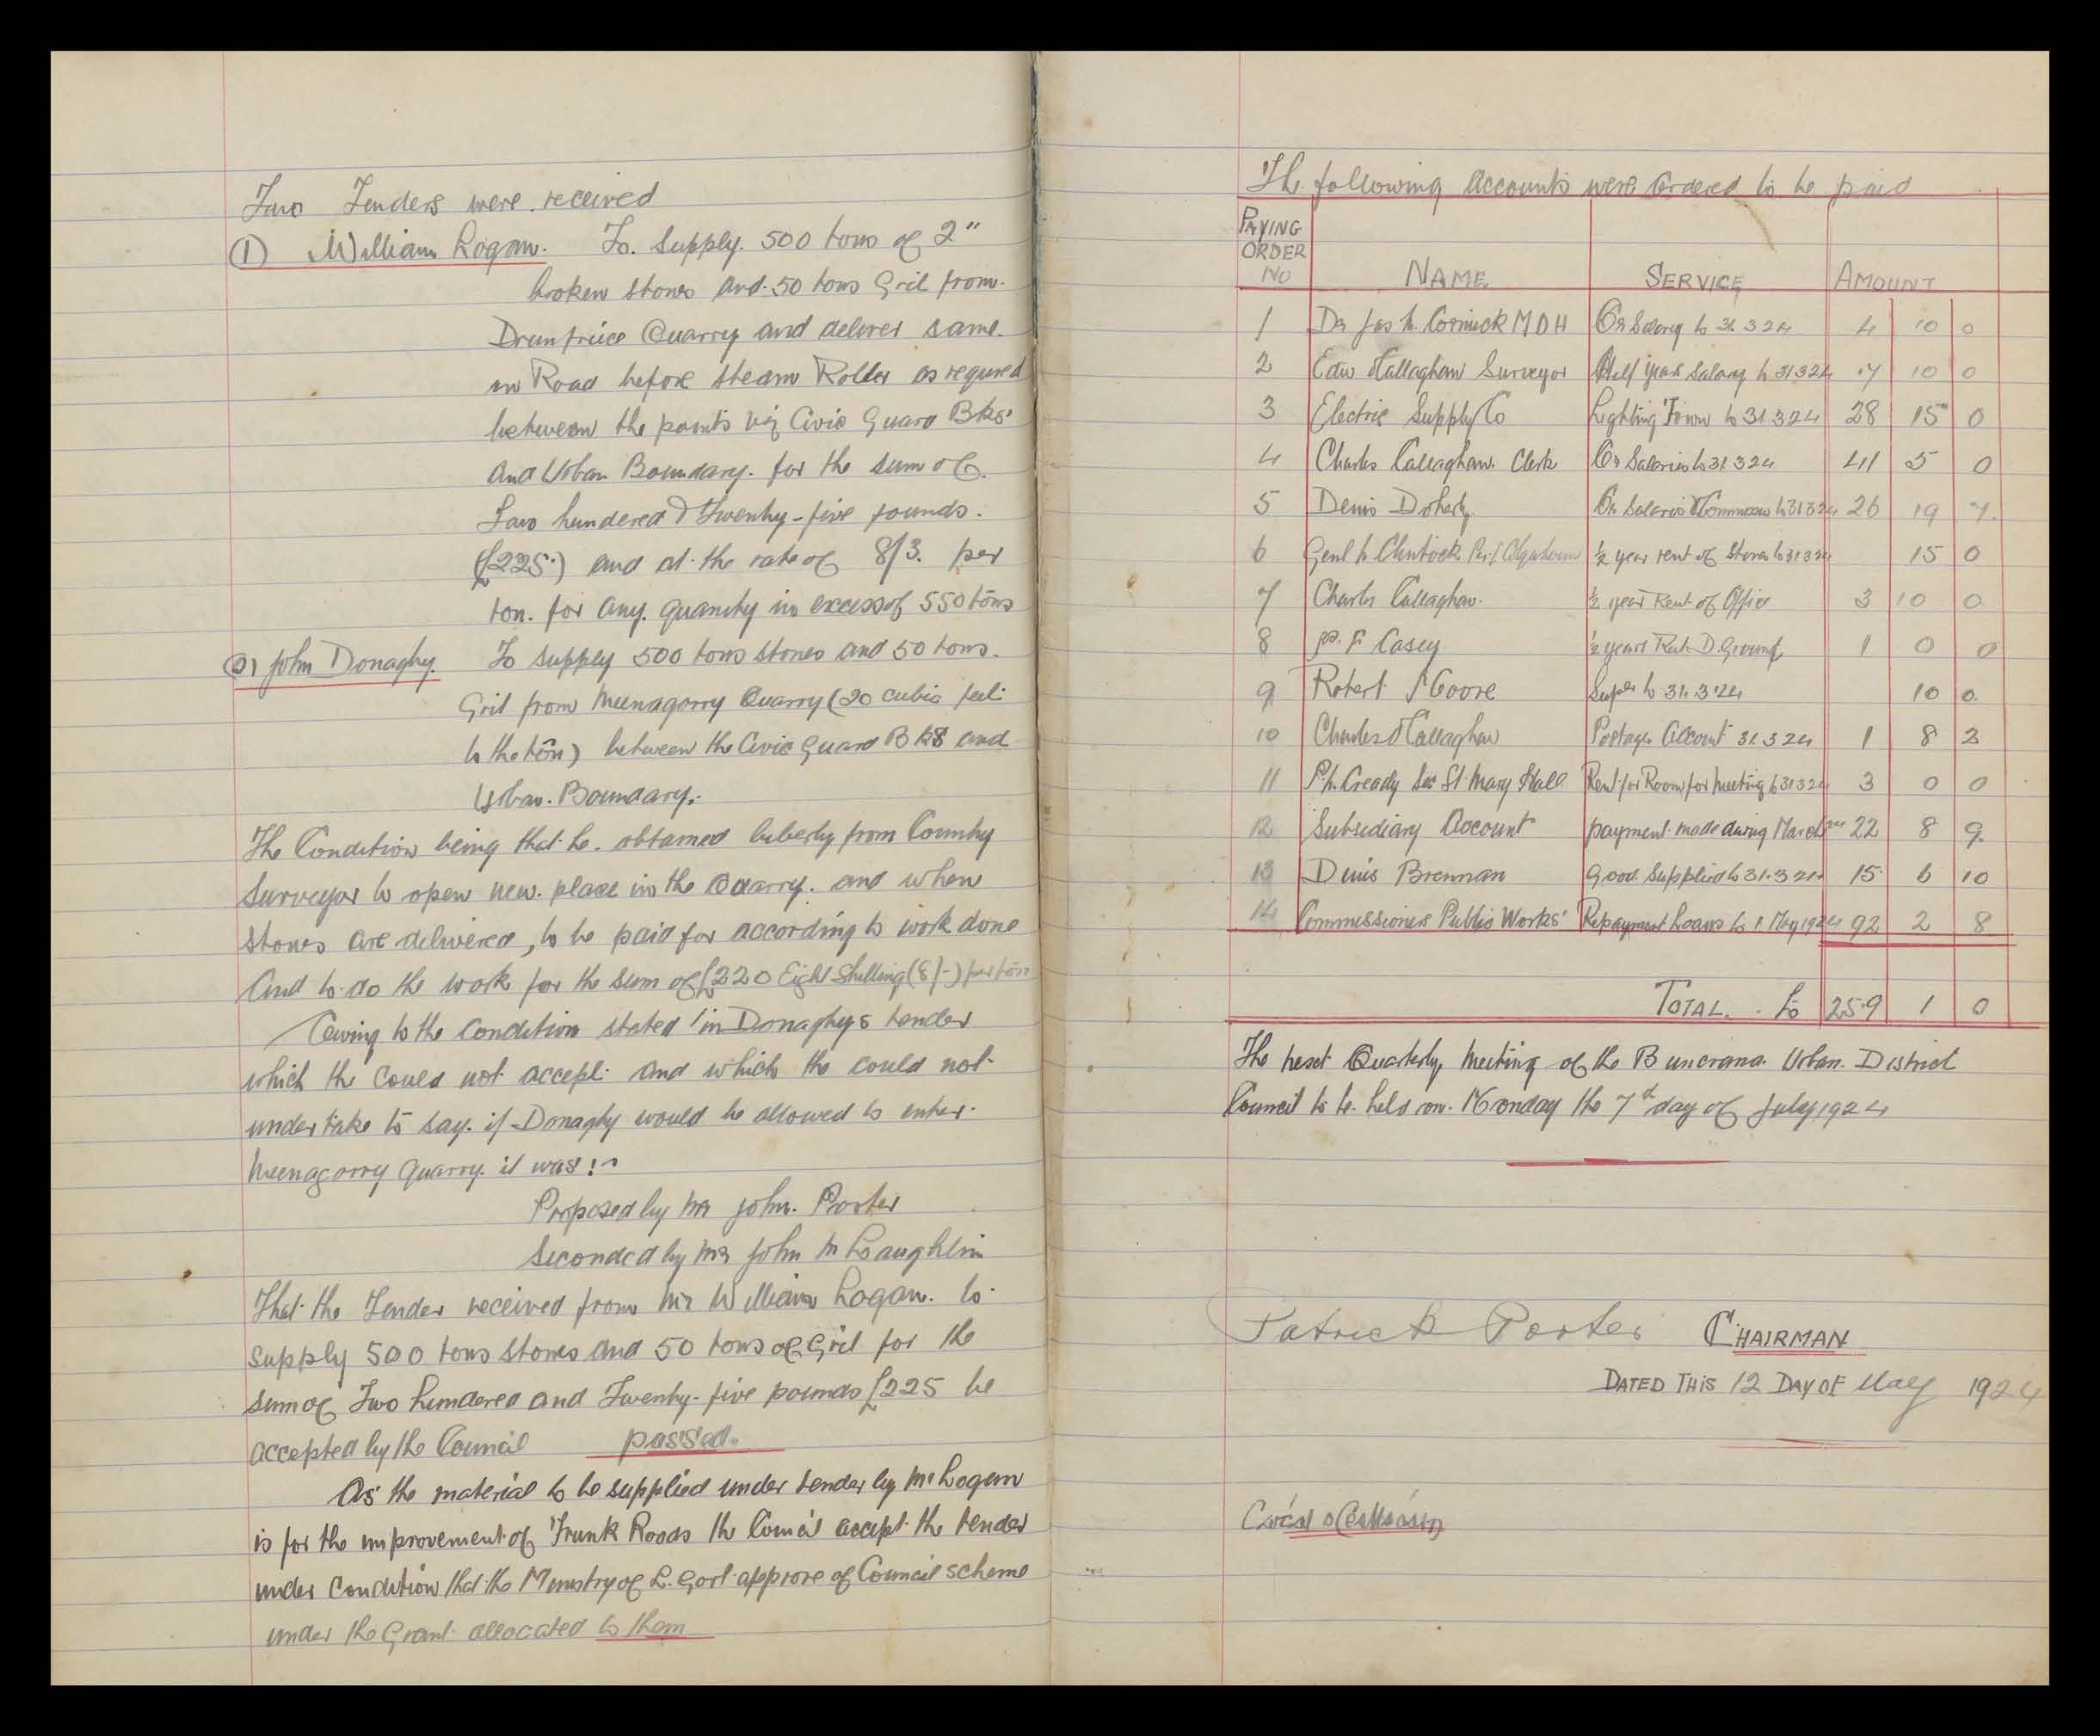 Two Tenders were received
(1) William Logan. To. Supply. 500 tons of 2"
broken stones and 50 tons Grit from.
Quarry and deliver same.
on Road before steam Roller as requred
between the points viz Civic Guard Bks.
and Urban Boundary. for the sum of.
Two hundered & Twenty-five pounds.
(£225.) and at the rate of 8/3. per
ton. for any. quantity in excess of 550 tons
(2) John Donaghy. To supply 500 tons stones and 50 tons.
Grit from Meenagorry Quarry (20 cubic feet
to the ton) between the Civic Guard Bks and
Urban. Boundary.
The Condition being that he. obtained liberty from County
Surveyor to open new. place in the Quarry. and when
stones are delivered, to be paid for according to work done
and to do the work for the sum of £220 Eight Shilling (8/-) per ton
Owing to the Condition stated in Donaghys tender
which the could not accept and which the could not
undertake to say. if Donaghy would be allowed to enter.
Meenagorry quarry. it was:-
Proposed by Mr John. Porter
Seconded by Mr John McLaughlin
That the Tender received from Mr William Logan. to
supply 500 tons stones and 50 tons of Grit for the
sum of Two hundered and Twenty-five pounds £225 be
accepted by the Council passed.
As the material to be supplied under tender by Mr Logan
is for the improvement of Trunk Roads the Council accept the tender
under Condition that the Ministry of L. Govt approve of Council scheme
under the Grant allocated to them
The following accounts were ordered to be paid
PAYING ORDER NO NAME SERVICE AMOUNT
1 Dr Jas McCormick MOH Or Salary to 31.3 24 4 10 0
2 Edw O'Callaghan Surveyor Half years Salary to 31 3 24 7 10 0
3 Electric Supply Co Lighting Town to 31.3 24 28 15 0
4 Charles Callaghan. Clerk Or Salaries to 31.3 24 41 5 0
5 Denis Doherty. Or Salaries & Commission to 31 3 24 26 19 7.
6 Genl McClintock ½ year rent of Stores to 31 3 24 15 0
7 Charles Callaghan. ½ year Rent of Office 3 10 0
8 F Casey ½ years Rent D. Ground 1 0 0
9 Robert Moore Super to 31.3 24 10 0.
10 Charles O'Callaghan Postage Account 31.3 24 1 8 3
11 P. McCready Sec St. Mary Hall Rent for Room for Meeting to 31 3 24 3 0 0
12 Subsidiary Account payment made during March 22 8 9.
13 Denis Brennan Good Supplied to 31.3 24 15 6 10
14 Commissioners Public Works' Repayment Loans to 1 May 1924 92 2 8
TOTAL. £ 259 1 0
The next Quarterly, Meeting of the Buncrana. Urban. District
Council to be. held on. Monday the 7th day of July 1924
Patrick Porter CHAIRMAN
DATED THIS 12 DAY OF May 1924